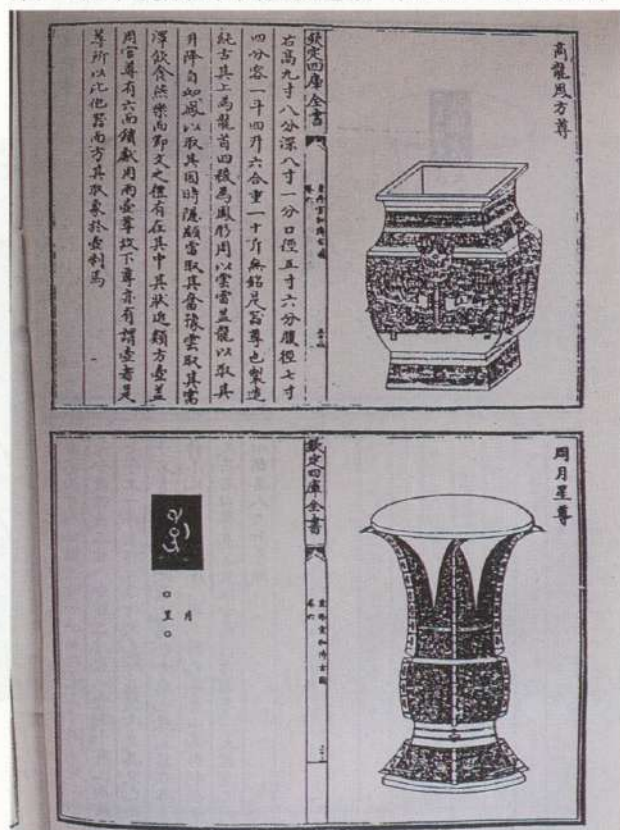 商龍鳳方尊
欽定四庫全書
重修宣和博古圖
卷六
右高九寸八分深八寸一分口徑五寸六分腹徑七寸
四分容一斗四升六合重一十斤無銘是器尊也製造
純古其上為龍首四稜為鳳形周以雲雷蓋龍以取其
升降自如鳳以取其因時隱顯雷取其奮豫雲取其需
澤飲食然樂而節文之禮有在其中其狀近類方壺蓋
周官尊有六而饋獻用兩壺尊故下尊亦有謂壺者是
尊所以比他器而方其取象於壺制焉
周月星尊
欽定四庫全書
重修宣和博古圖
卷六
月
星